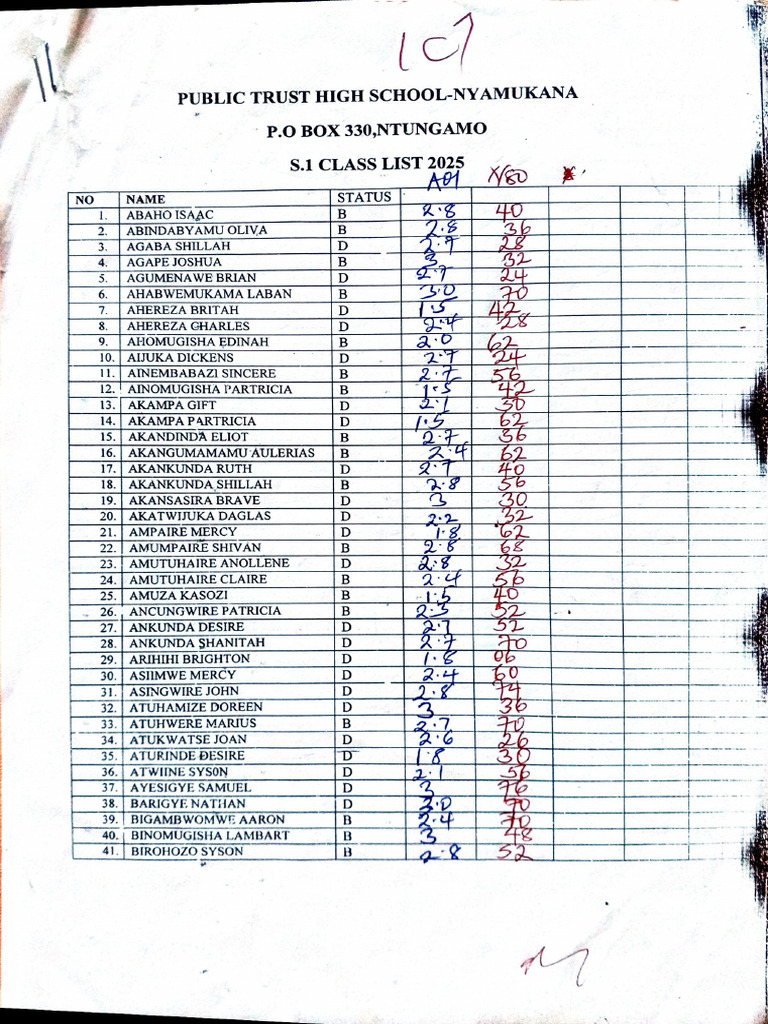 ICT
PUBLIC TRUST HIGH SCHOOL-NYAMUKANA
P.O BOX 330,NTUNGAMO
S.1 CLASS LIST 2025
NO NAME STATUS A01 X/80
1. ABAHO ISAAC B 2.8 40
2. ABINDABYAMU OLIVA B 2.8 36
3. AGABA SHILLAH D 2.7 28
4. AGAPE JOSHUA B 3 32
5. AGUMENAWE BRIAN D 2.7 24
6. AHABWEMUKAMA LABAN B 3.0 70
7. AHEREZA BRITAH D 1.5 42
8. AHEREZA CHARLES D 2.4 28
9. AHOMUGISHA EDINAH B 2.0 62
10. AIJUKA DICKENS D 2.7 24
11. AINEMBABAZI SINCERE B 2.7 56
12. AINOMUGISHA PARTRICIA B 1.5 42
13. AKAMPA GIFT D 2.1 30
14. AKAMPA PARTRICIA D 1.5 62
15. AKANDINDA ELIOT B 2.7 36
16. AKANGUMAMAMU AULERIAS B 2.4 62
17. AKANKUNDA RUTH D 2.7 40
18. AKANKUNDA SHILLAH B 2.8 56
19. AKANSASIRA BRAVE D 3 30
20. AKATWIJUKA DAGLAS D 2.2 32
21. AMPAIRE MERCY D 1.8 62
22. AMUMPAIRE SHIVAN B 2.8 68
23. AMUTUHAIRE ANOLLENE D 2.8 32
24. AMUTUHAIRE CLAIRE B 2.4 56
25. AMUZA KASOZI B 1.5 40
26. ANCUNGWIRE PATRICIA B 2.3 52
27. ANKUNDA DESIRE D 2.7 52
28. ANKUNDA SHANITAH D 2.7 70
29. ARIHIHI BRIGHTON D 1.8 06
30. ASIIMWE MERCY D 2.4 60
31. ASINGWIRE JOHN D 2.8 74
32. ATUHAMIZE DOREEN D 3 36
33. ATUHWERE MARIUS B 2.7 70
34. ATUKWATSE JOAN D 2.6 26
35. ATURINDE DESIRE D 1.8 30
36. ATWIINE SYS0N D 2.1 56
37. AYESIGYE SAMUEL D 3 76
38. BARIGYE NATHAN D 3.0 70
39. BIGAMBWOMWE AARON B 2.4 70
40. BINOMUGISHA LAMBART B 3 48
41. BIROHOZO SYSON B 2.8 52